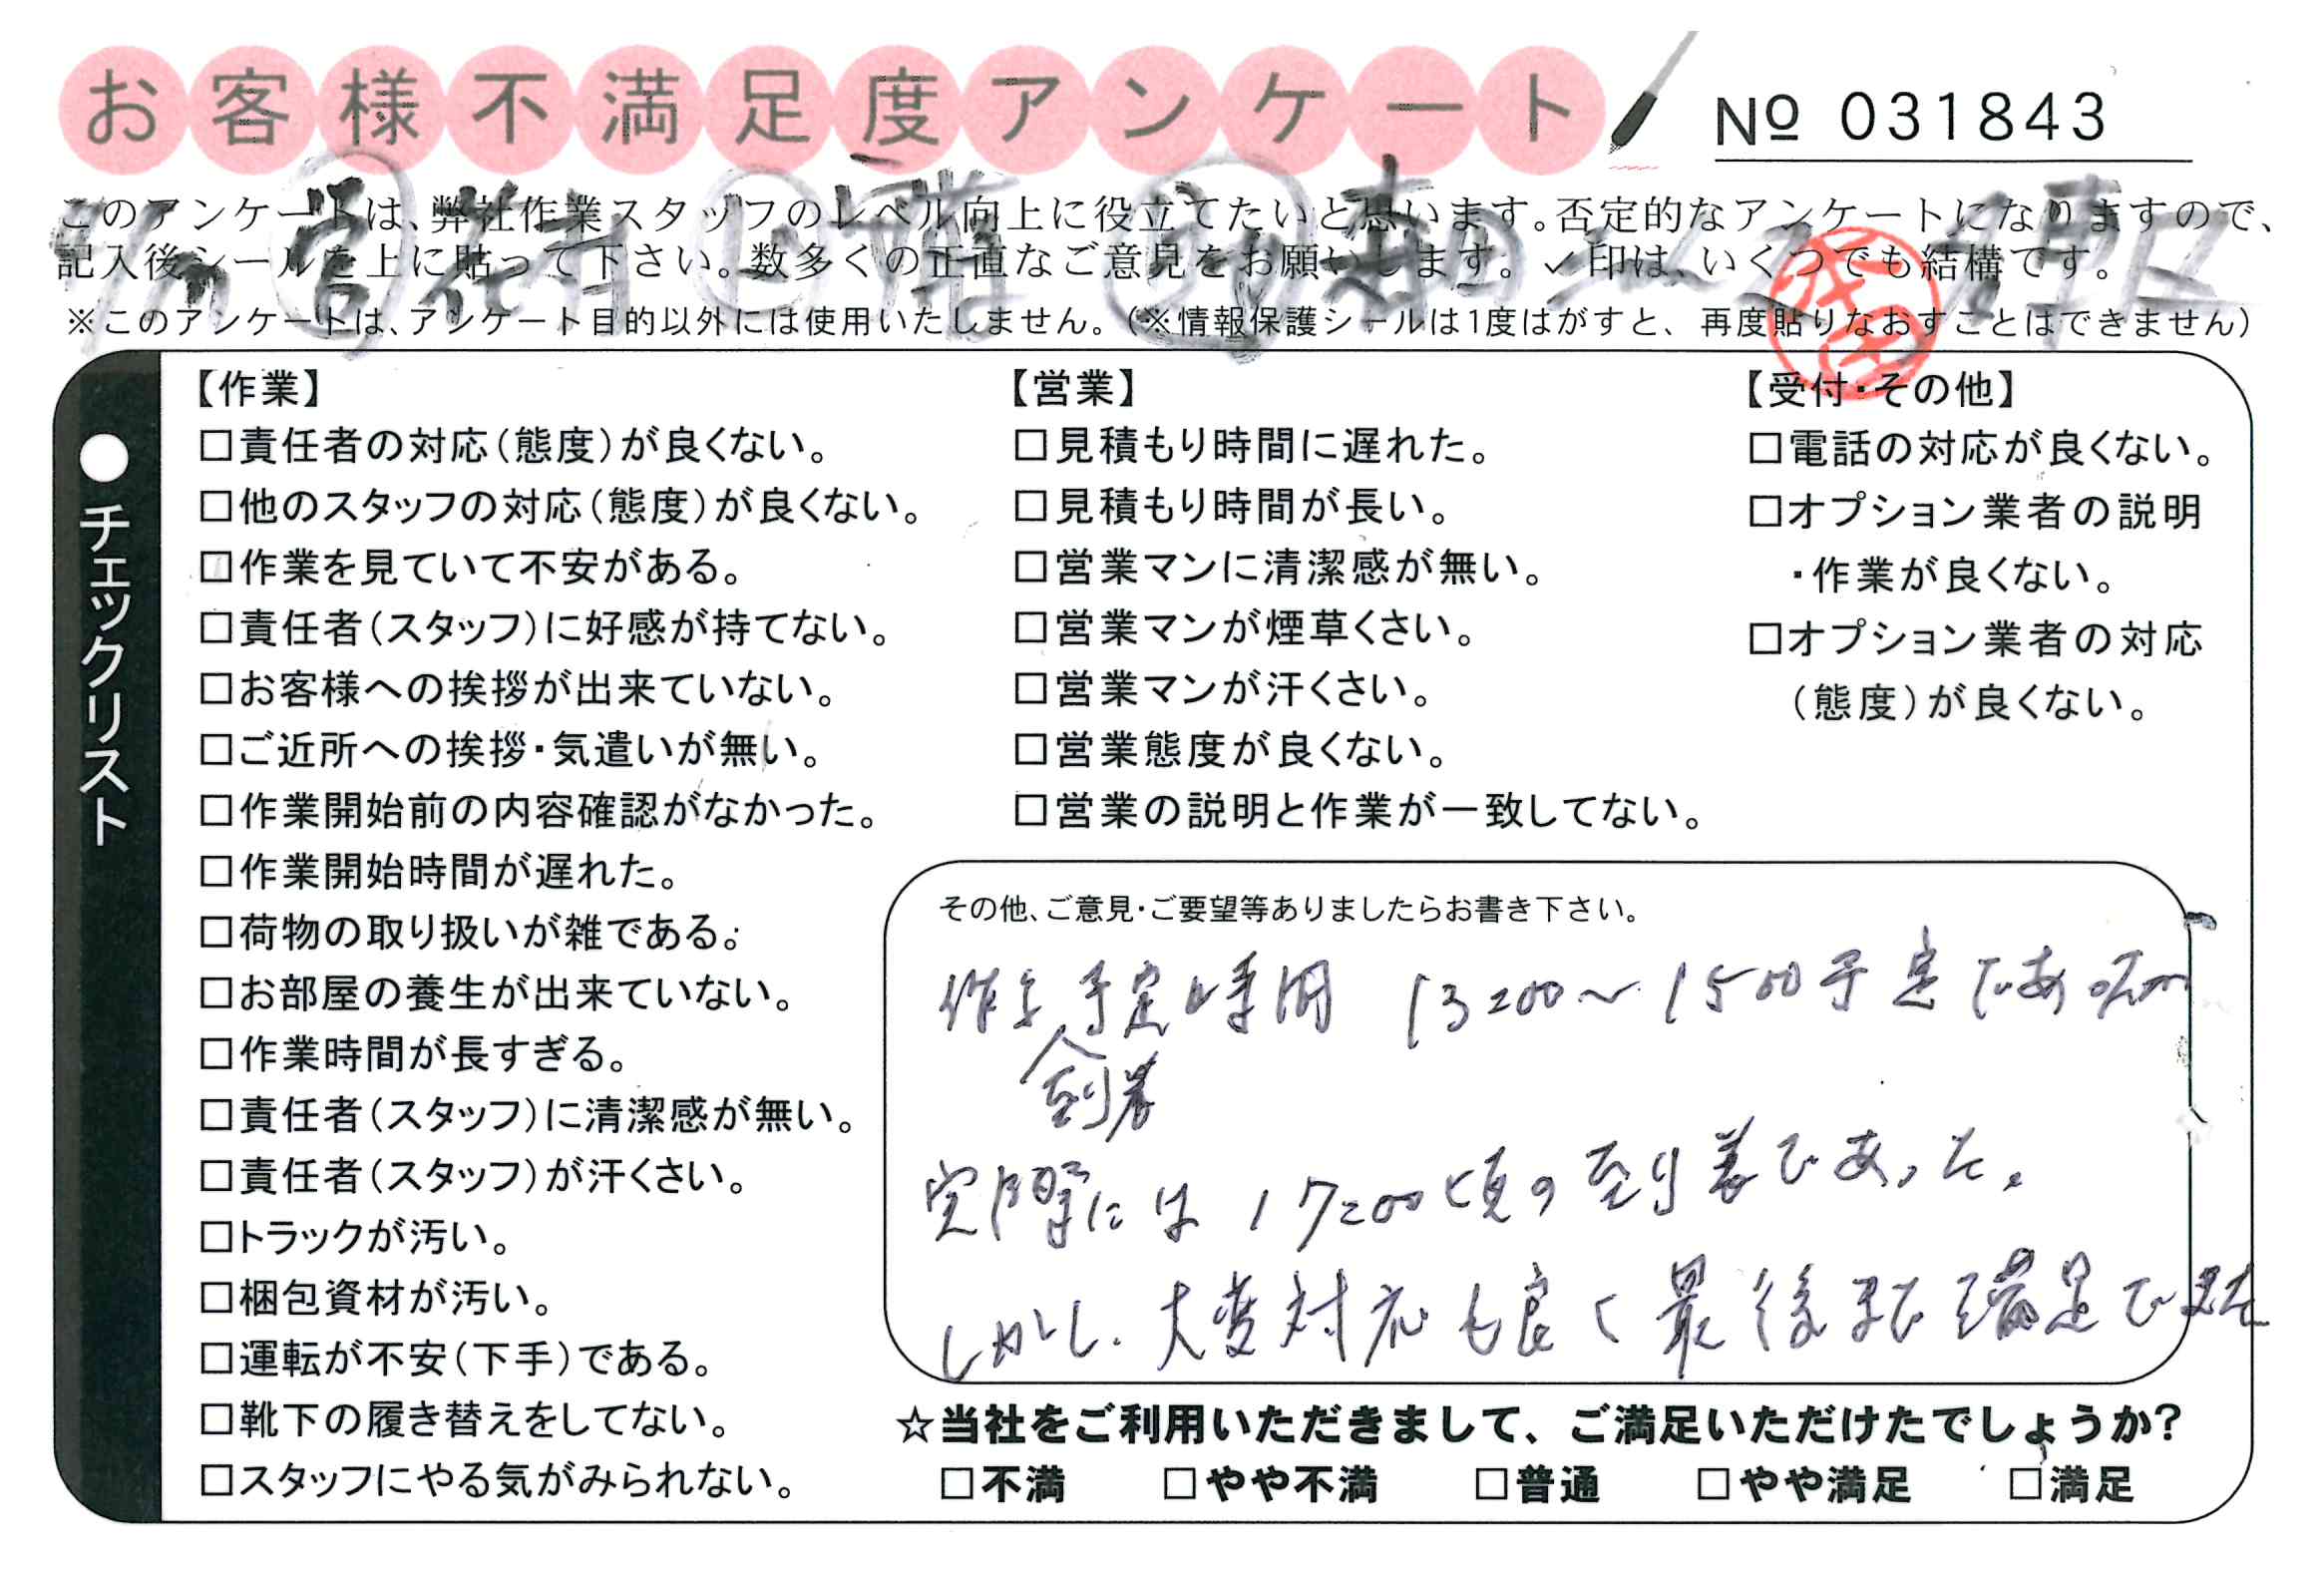 お客様不満足度アンケート
№ 031843
このアンケートは、弊社作業スタッフのレベル向上に役立てたいと思います。否定的なアンケートになりますので、
記入後シールを上に貼って下さい。数多くの正直なご意見をお願いします。✓印は、いくつでも結構です。
※このアンケートは、アンケート目的以外には使用いたしません。(※情報保護シールは1度はがすと、再度貼りなおすことはできません)
●チェックリスト
【作業】
□責任者の対応(態度)が良くない。
□他のスタッフの対応(態度)が良くない。
□作業を見ていて不安がある。
□責任者(スタッフ)に好感が持てない。
□お客様への挨拶が出来ていない。
□ご近所への挨拶・気遣いが無い。
□作業開始前の内容確認がなかった。
□作業開始時間が遅れた。
□荷物の取り扱いが雑である。
□お部屋の養生が出来ていない。
□作業時間が長すぎる。
□責任者(スタッフ)に清潔感が無い。
□責任者(スタッフ)が汗くさい。
□トラックが汚い。
□梱包資材が汚い。
□運転が不安(下手)である。
□靴下の履き替えをしてない。
□スタッフにやる気がみられない。
【営業】
□見積もり時間に遅れた。
□見積もり時間が長い。
□営業マンに清潔感が無い。
□営業マンが煙草くさい。
□営業マンが汗くさい。
□営業態度が良くない。
□営業の説明と作業が一致してない。
【受付・その他】
□電話の対応が良くない。
□オプション業者の説明
・作業が良くない。
□オプション業者の対応
(態度)が良くない。
その他、ご意見・ご要望等ありましたらお書き下さい。
予定時間 13:00〜15:00予定であったが
到着
実際には17:00頃の到着であった。
しかし、大変対応も良く最後まで満足でました
☆当社をご利用いただきまして、ご満足いただけたでしょうか?
□不満 □やや不満 □普通 □やや満足 □満足